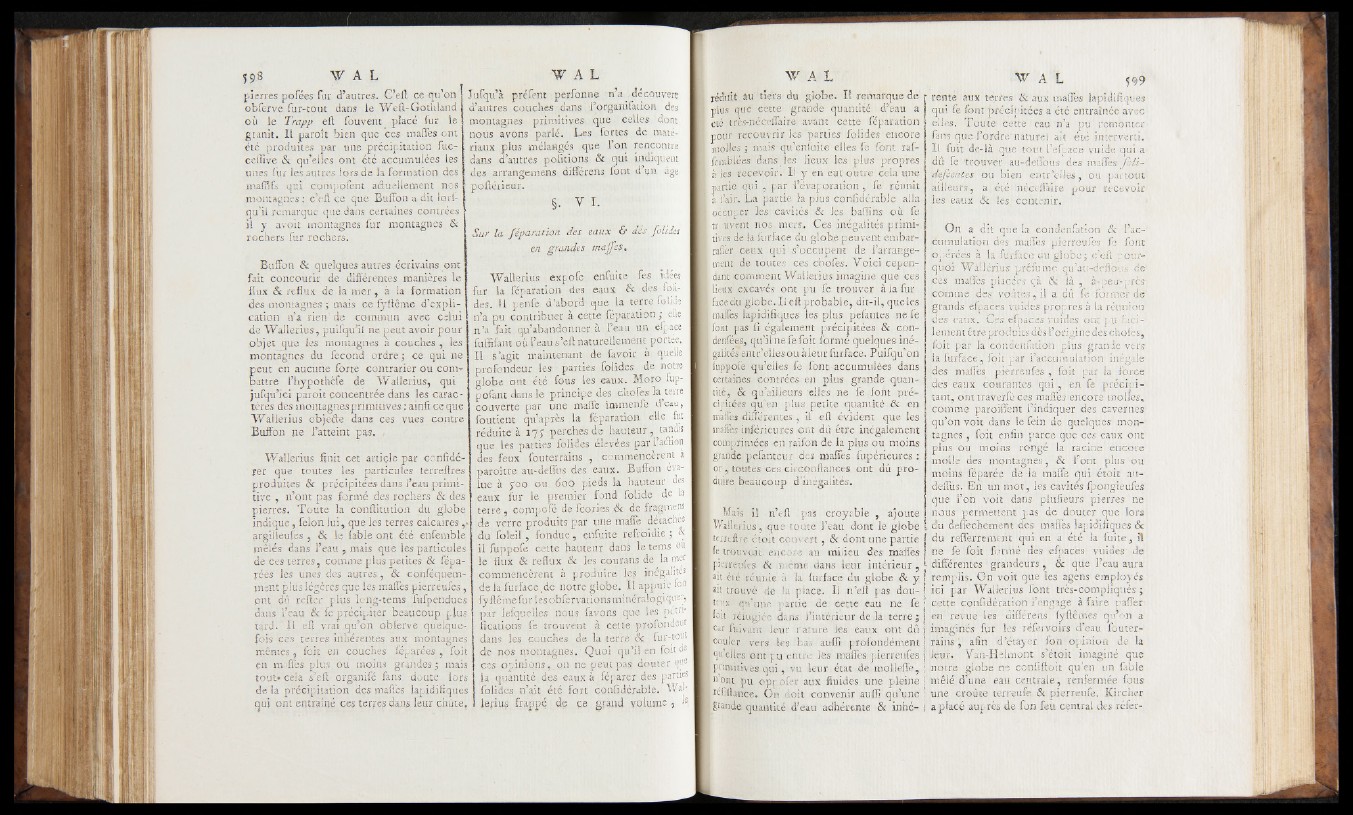 598 W A L
pierres posées sur d'autres. C'est ce qu'on
observe sur-tout dans le West-Gothland
où le Trapp est souvent placé sur le
granit. Il paroît bien que ces masses ont
été produites par une précipitation suc-
cessive & qu'elles ont été accumulées les
unes sur les autres lors de la formation des
massifs qui composent actuellement nos
montagnes : c'est ce que Buffon a dit lors-
qu'il remarque que dans certaines contrées
il y avoit montagnes sur montagnes &
rochers sur rochers.
Buffon & quelques autres écrivains ont
fait concourir de différentes manières le
flux & reflux de la mer, à la formation
des montagnes ; mais ce système d'expli-
cation n'a rien de commun avec celui
de Wallerius, puisqu'il ne peut avoir pour
objet que les montagnes à couches, les
montagnes du second ordre ; ce qui ne
peut en aucune sorte contrarier ou com-
battre l'hypothèse de Wallerius, qui
jusqu'ici paroît concentrée dans les carac-
tères des montagnes primitives : ainsi ce que
Wallerius objecte dans ces vues contre
Buffon ne l'atteint pas.
Wallerius finit cet article par considé-
rer que toutes les particules terrestres
produites & précipitées dans l'eau primi-
tive, n'ont pas formé des rochers & des
pierres. Toute la constitution du globe
indique, selon lui, que les terres calcaires,
argilleuses, & le sable ont été ensemble
mêlés dans l'eau, mais que les particules
de ces terres, comme plus petites & sépa-
rées les unes des autres, & conséquem-
ment plus légères que les masses pierreuses,
ont dû rester plus long-tems suspendues
dans l'eau & se précipiter beaucoup plus
tard. Il est vrai qu'on observe quelque-
fois ces terres inhérentes aux montagnes
mêmes, soit en couches séparées, soit
en masses plus ou moins grandes ; mais
tout cela s'est organisé sans doute lors
de la précipitation des masses lapidifiques
qui ont entraîné ces terres dans leur chûte.
W A L
Jusqu'à présent personne n'a découvert
d'autres couches dans l'organisation des
montagnes primitives que celles dont
nous avons parlé. Les sortes de maté-
riaux plus mélangés que l'on rencontre
dans d'autres positions & qui indiquent
des arrangemens différens sont d'un age
postérieur.
§. V I.
Sur la séparation des eaux & des solides
en grandes masses.
Wallerius expose ensuite ses idées
sur la séparation des eaux & des soli-
des. Il pense d'abord que la terre solide
n'a pu contribuer à cette séparation ; elle
n'a fait qu'abandonner à l'eau un espace
suffisant où l'eau s'est naturellement portée.
Il s'agit maintenant de savoir à quelle
profondeur les parties solides de notre
globe ont été sous les eaux. Moro sup-
posant dans le principe des choses la terre
couverte par une masse immense d'eau,
soutient qu'après la séparation elle fut
réduite à 175 perches de hauteur, tandis
que les parties solides élevées par l'action
des feux souterrains, commencèrent à
paroître au-dessus des eaux. Buffon éva-
lue à 500 ou 600 pieds la hauteur des
eaux sur le premier fond solide de la
terre, composé de scories & de fragmens
de verre produits par une masse détachée
du soleil, fondue, ensuite refroidie ; &
il suppose cette hauteur dans le tems où
le flux & reflux & les courans de la mer
commencèrent à produire les inégalités
de la surface de notre globe. Il appuie son
système sur les observations minéralogiques,
par lesquelles nous savons que les pétri-
fications se trouvent à cette profondeur
dans les couches de la terre & sur-tout
de nos montagnes. Quoi qu'il en soit de
ces opinions, on ne peut pas douter que
la quantité des eaux à séparer des parties
solides n'ait été fort considérable. Wal-
lerius frappé de ce grand volume, le
W A L
réduit au tiers du globe. Il remarque de
plus que cette grande quantité d'eau a
été très-nécessaire avant cette séparation
pour recouvrir les parties solides encore
molles ; mais qu'ensuite elles se sont ras-
semblées dans les lieux les plus propres
à les recevoir. Il y en eut outre cela une
partie qui, par l'évaporation, se réunit
à l'air. La partie la plus considérable alla
occuper les cavités & les bassins où se
trouvent nos mers. Ces inégalités primi-
tives de la surface du globe peuvent embar-
rasser ceux qui s'occupent de l'arrange-
ment de toutes ces choses. Voici cepen-
dant comment Wallerius imagine que ces
lieux excavés ont pu se trouver à la sur-
face du globe. Il est probable, dit-il, que les
masses lapidifiques les plus pesantes ne se
sont pas si également précipitées & con-
densées, qu'il ne se soit formé quelques iné-
galités entr'elles ou à leur surface. Puisqu'on
suppose qu'elles se sont accumulées dans
certaines contrées en plus grande quan-
tité, & qu'ailleurs elles ne se sont pré-
cipitées qu'en plus petite quantité & en
masses différentes, il est évident que les
masses inférieures ont dû être inégalement
comprimées en raison de la plus ou moins
grande pesanteur des masses supérieures :
or, toutes ces circonstances ont dû pro-
duire beaucoup d'inégalités.
Mais il n'est pas croyable, ajoute
Wallerius, que toute l'eau dont le globe
terrestre étoit couvert, & dont une partie
se trouvoit encore au milieu des masses
pierreuses & même dans leur intérieur,
ait été réunie à la surface du globe & y
ait trouvé de la place. Il n'est pas dou-
teux qu'une partie de cette eau ne se
soit réfugiée dans l'intérieur de la terre ;
car suivant leur nature les eaux ont dû
couler vers les bas aussi profondément
qu'elles ont pu entre les masses pierreuses
primitives qui, vu leur état de mollesse,
n'ont pu opposer aux fluides une pleine
résistance. On doit convenir aussi qu'une
grande quantité d'eau adhérente & inhé-
W A L 599
rente aux terres & aux masses lapidifiques
qui se sont précipitées a été entraînée avec
elles. Toute cette eau n'a pu remonter
sans que l'ordre naturel ait été interverti.
Il suit de-là que tout l'espace vuide qui a
dû se trouver au-dessous des masses soli-
descentes ou bien entr'elles, ou partout
ailleurs, a été nécessaire pour recevoir
les eaux & les contenir.
On a dit que la condensation & l'ac-
cumulation des masses pierreuses se sont
opérées à la surface du globe ; c'est pour-
quoi Wallerius présume qu'au-dessous de
ces masses placées çà & là, à-peu-près
comme des voûtes, il a dû se former de
grands espaces vuides propres à la réunion
des eaux. Ces espaces vuides ont pu faci-
lement être produits dès l'origine des choses,
soit par la condensation plus grande vers
la surface, soit par l'accumulation inégale
des masses pierreuses, soit par la force
des eaux courantes qui, en se précipi-
tant, ont traversé ces masses encore molles,
comme paroissent l'indiquer des cavernes
qu'on voit dans le sein de quelques mon-
tagnes, soit enfin parce que ces eaux ont
plus ou moins rongé la racine encore
molle des montagnes, & l'ont plus ou
moins séparée de la masse qui étoit au-
dessus. En un mot, les cavités spongieuses
que l'on voit dans plusieurs pierres ne
nous permettent pas de douter que lors
du dessèchement des masses lapidifiques &
du resserrement qui en a été la suite, il
ne se soit formé des espaces vuides de
différentes grandeurs, & que l'eau aura
remplis. On voit que les agens employés
ici par Wallerius sont très-compliqués ;
cette considération l'engage à faire passer
en revue les différens systêmes qu'on a
imaginés sur les réservoirs d'eau souter-
rains, afin d'étayer son opinion de la
leur. Van-Helmont s'étoit imaginé que
notre globe ne consistoit qu'en un sable
mêlé d'une eau centrale, renfermée sous
une croûte terreuse & pierreuse. Kircher
a placé auprès de son feu central des réser-